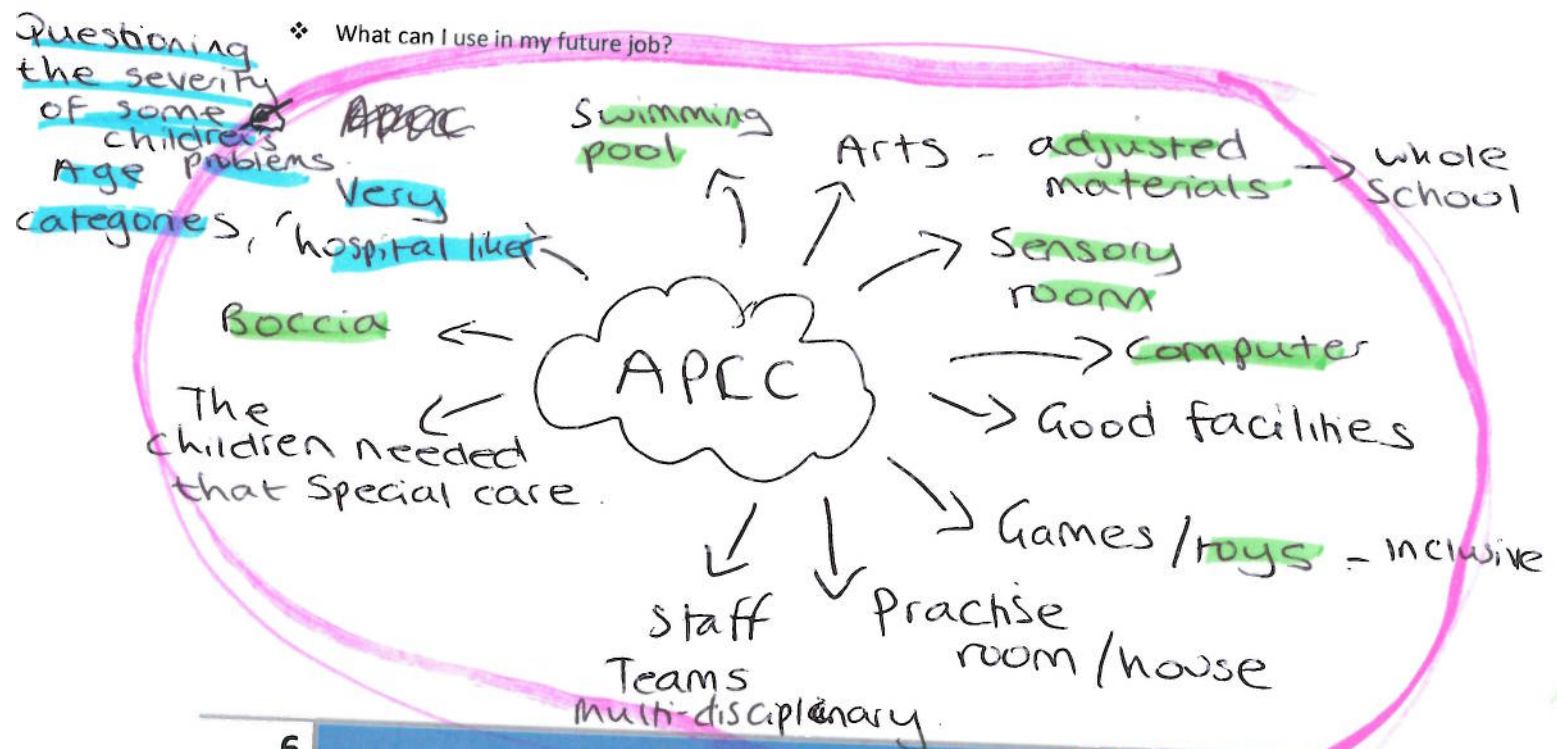 ❖ What can I use in my future job?
Questioning
the severity
of some
children's
problems.
Age
categories,
Very
'hospital like'
Swimming
pool
Arts - adjusted
materials → whole
school
Sensory
room
Computer
Good facilities
Games / toys - inclusive
Practise
room / house
Staff
Teams
multi-disciplinary.
The
children needed
that special care.
Boccia
APCC
6